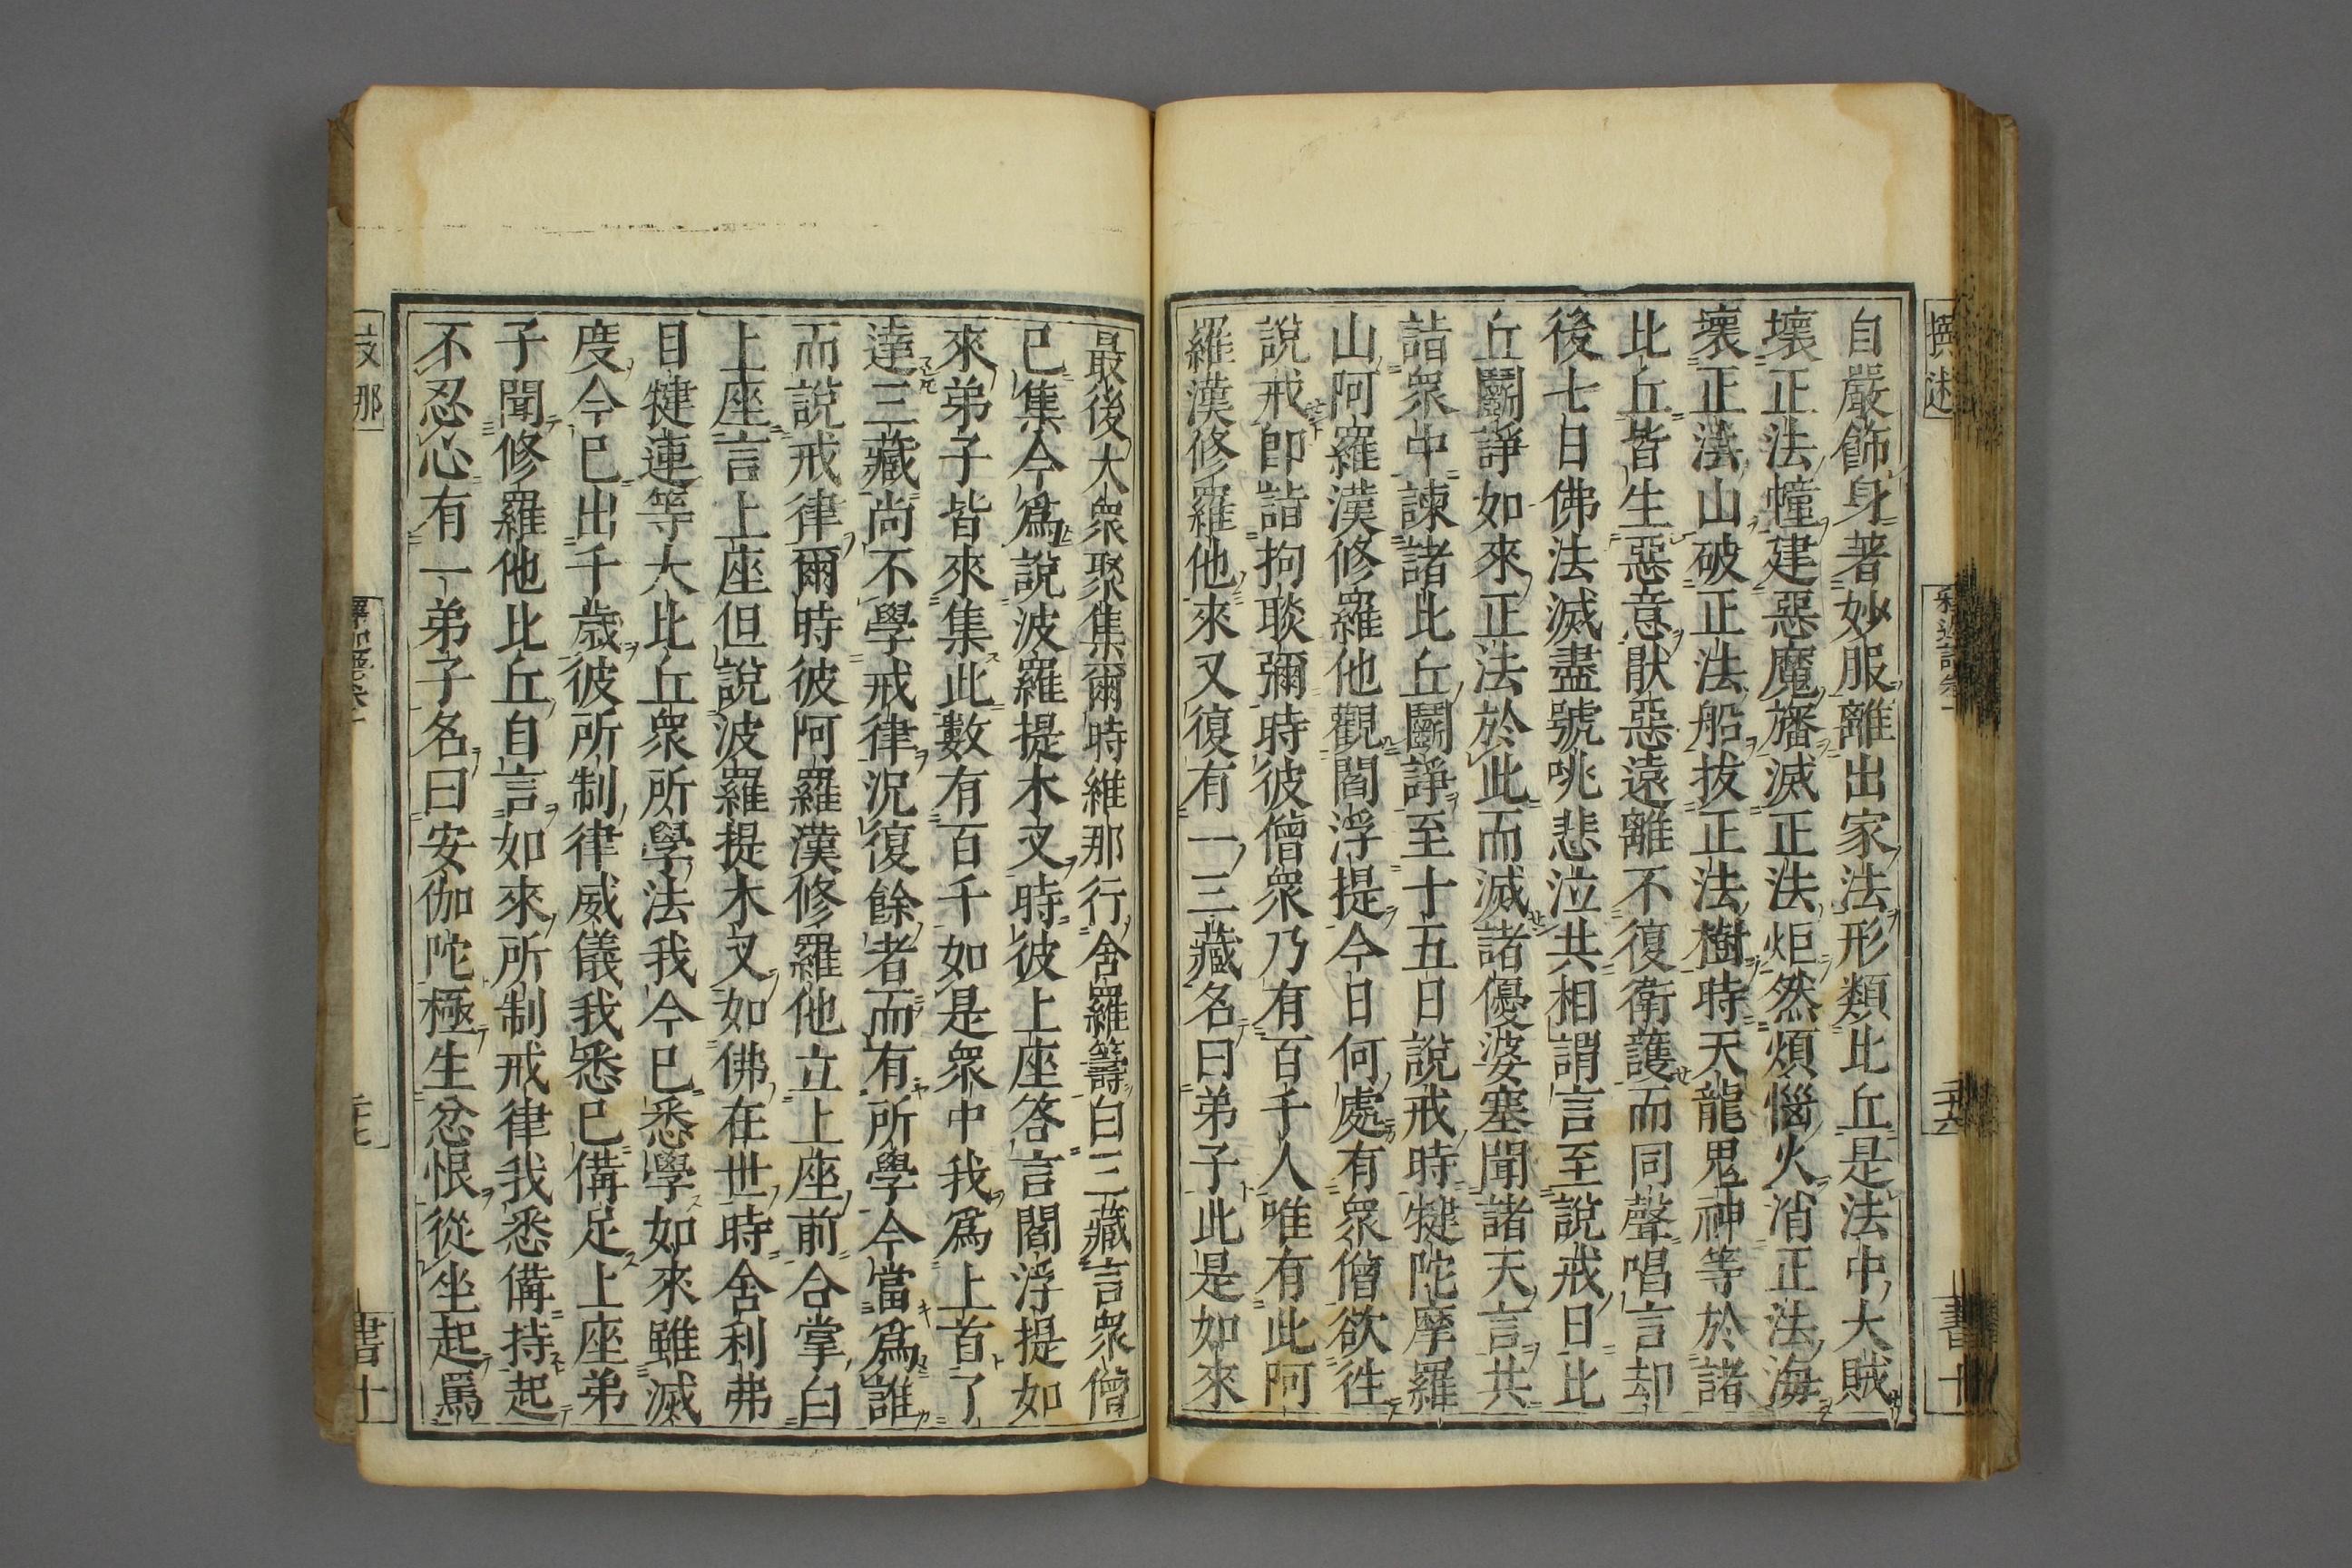 自嚴飾身著妙服離出家法形類比丘是法中大賊
壞正法幢建惡魔旛滅正法炬然煩惱火消正法海
壞正法山破正法船拔正法樹時天龍鬼神等於諸
比丘皆生惡意猒惡遠離不復衛護而同聲唱言却
後七日佛法滅盡號咷悲泣共相謂言至說戒日比
丘鬭諍如來正法於此而滅諸優婆塞聞諸天言共
詣衆中諫諸比丘鬭諍至十五日說戒時犍陀摩羅
山阿羅漢修羅他觀閻浮提今日何處有衆僧欲徃
說戒即詣拘睒彌時彼僧衆乃有百千人唯有此阿
羅漢修羅他來又復有一三藏名曰弟子此是如來
最後大衆聚集爾時維那行舍羅籌白三藏言衆僧
已集今爲說波羅提木叉時彼上座答言閻浮提如
來弟子皆來集此數有百千如是衆中我爲上首了
達三藏尚不學戒律況復餘者而有所學今當爲誰
而說戒律爾時彼阿羅漢修羅他立上座前合掌白
上座言上座但說波羅提木叉如佛在世時舍利弗
目犍連等大比丘衆所學法我今已悉學如來雖滅
度今已出千歲彼所制律威儀我悉已備足上座弟
子聞修羅他比丘自言如來所制戒律我悉備持起
不忍心有一弟子名曰安伽陀極生忿恨從坐起罵